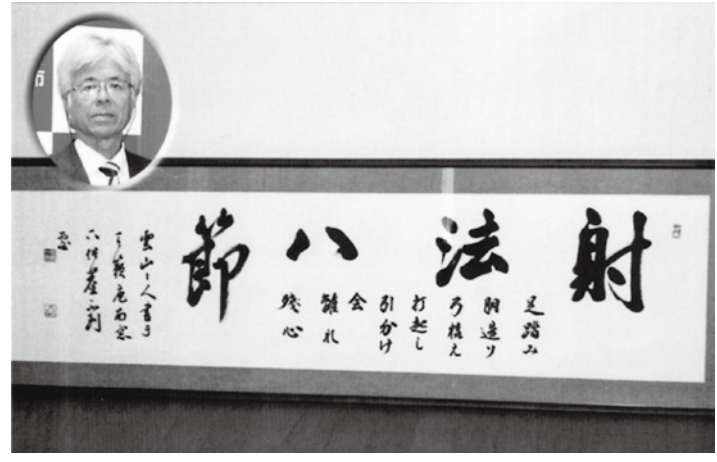 射法八節
足踏み
胴造り
弓構え
打起し
引分け
会
離れ
残心
雲山人書于